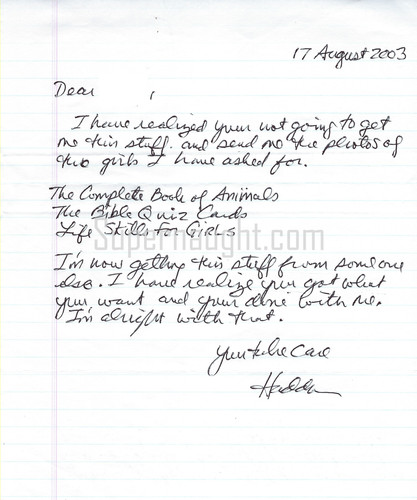 17 August 2003
Dear
I have realized your not going to get
me this stuff. and send me the photos of
the girls I have asked for.
The Complete Book of Animals
The Bible Quiz Cards
Life Skills For Girls
Supernaught.com
I'm now getting this stuff from someone
else. I have realize your got what
your want and your done with me.
I'm alright with that.
You take Care